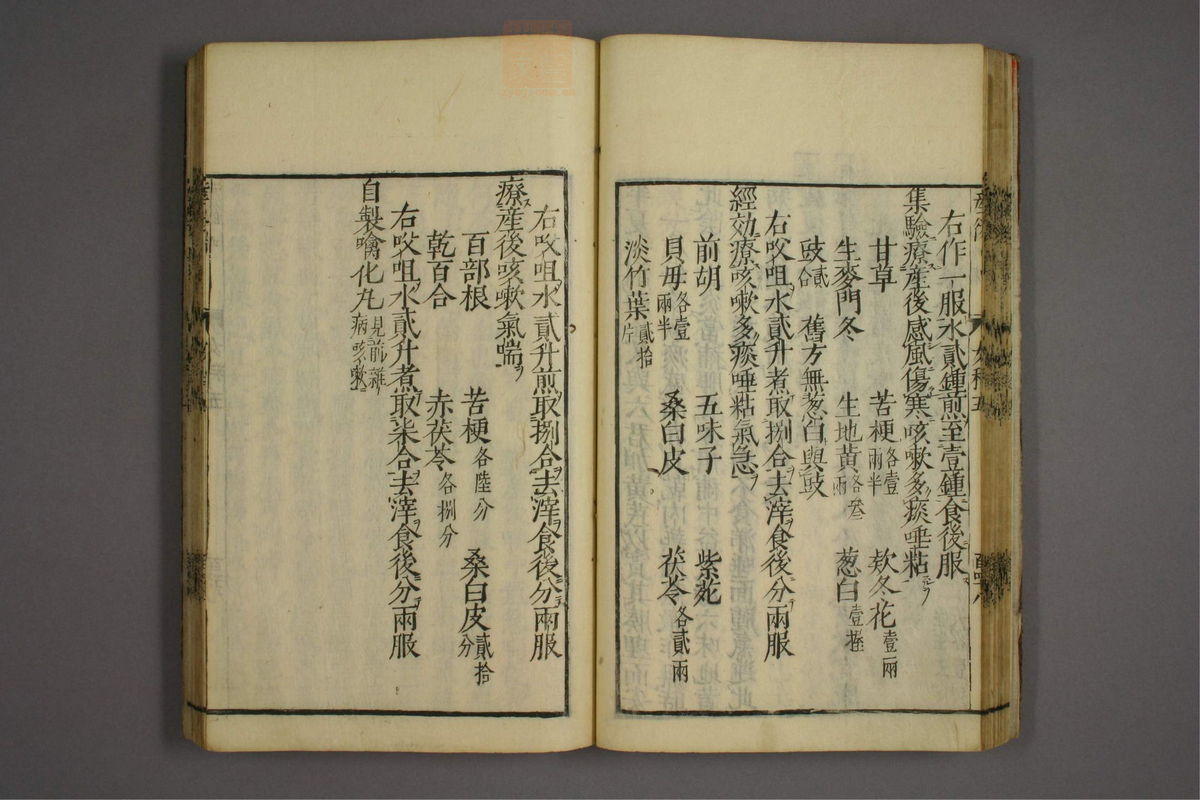 右作一服水貳鍾煎至壹鍾食後服
集驗療產後感風傷寒咳嗽多痰唾粘
甘草　苦梗各壹兩半　欵冬花壹兩
生麥門冬　生地黃各叄兩　葱白壹握
豉貳合　舊方無葱白與豉
右㕮咀水貳升煮取捌合去滓食後分兩服
經効療咳嗽多痰唾粘氣急
前胡　五味子　紫菀
貝毋各壹兩半　桑白皮　茯苓各貳兩
淡竹葉貳拾片
右㕮咀水貳升煎取捌合去滓食後分兩服
療產後咳嗽氣喘
百部根　苦梗各陸分　桑白皮貳拾分
乾百合　赤茯苓各捌分
右㕮咀水貳升煮取柒合去滓食後分兩服
自製噙化丸見前雜病咳嗽